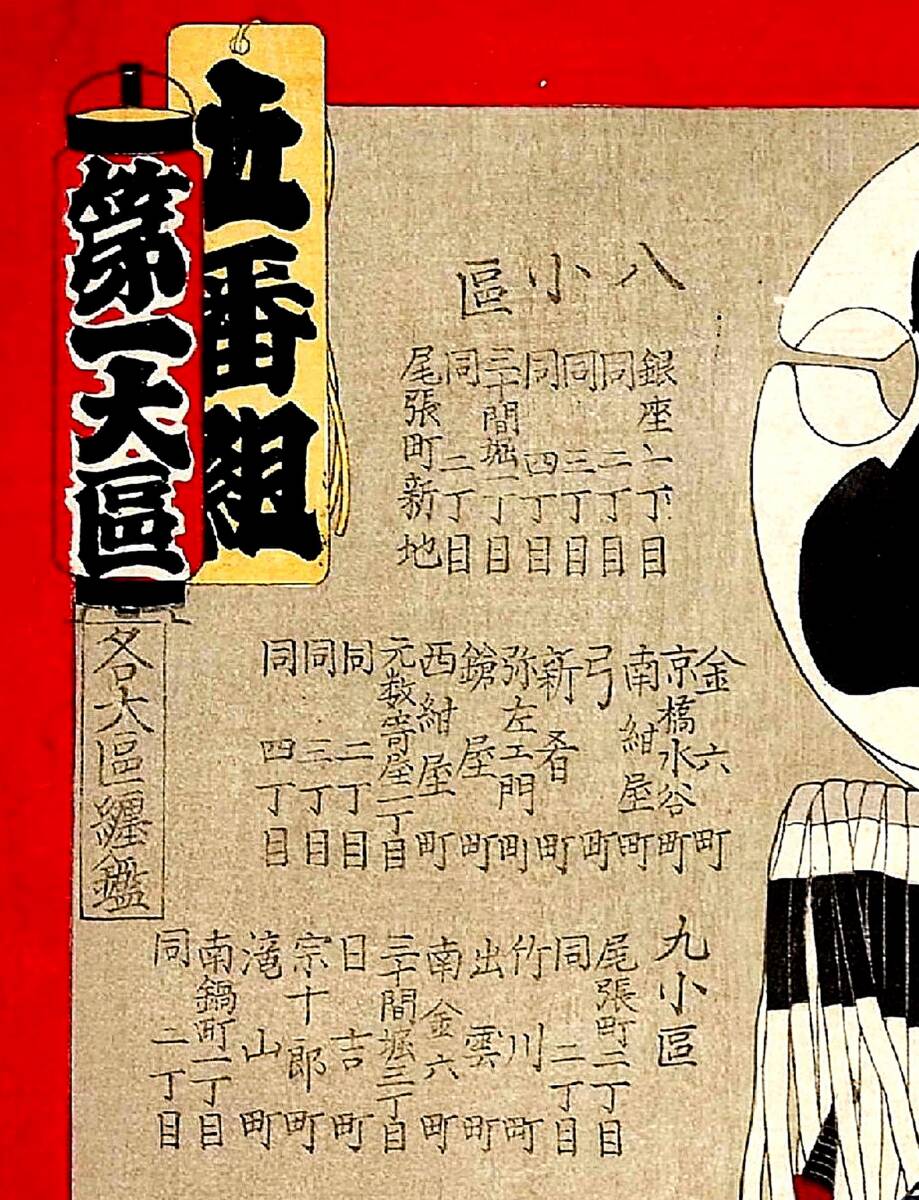 五番組
第一大區
各大區纏鑑
八小區
銀座一丁目
同二丁目
同三丁目
同四丁目
三十間堀一丁目
同二丁目
尾張町新地
金六町
京橋水谷町
南紺屋町
弓町
新肴町
弥左エ門町
鎗屋町
西紺屋町
元数寄屋一丁目
同二丁目
同三丁目
同四丁目
九小區
尾張町一丁目
同二丁目
竹川町
出雲町
南金六町
三十間堀三丁目
日吉町
宗十郎町
滝山町
南鍋町一丁目
同二丁目